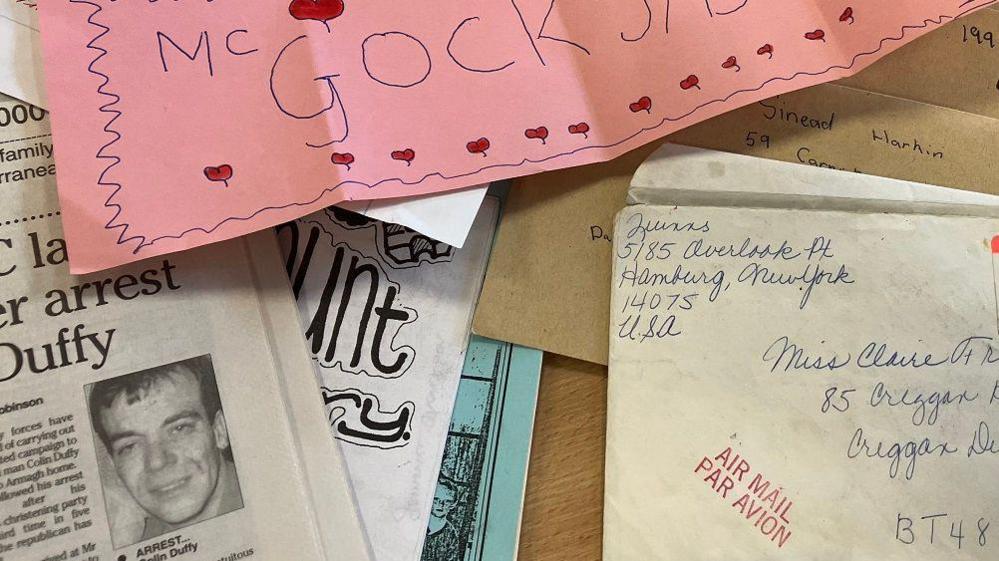 McGOCK
000
family
C la
er arrest
Duffy
obinson
forces have
of carrying out
ted campaign to
man Colin Duffy
Armagh home.
llowed his arrest
after his
christening party
ird time in five
he republican has
at Mr
ARREST...
Colin Duffy
unt
ny.
199
Sinead Harkin
59
Da
Quinns
5185 Overlook Pt
Hamburg, New York
14075
USA
Miss Claire Fr
85 Creggan
Creggan De
BT48
AIR MAIL
PAR AVION